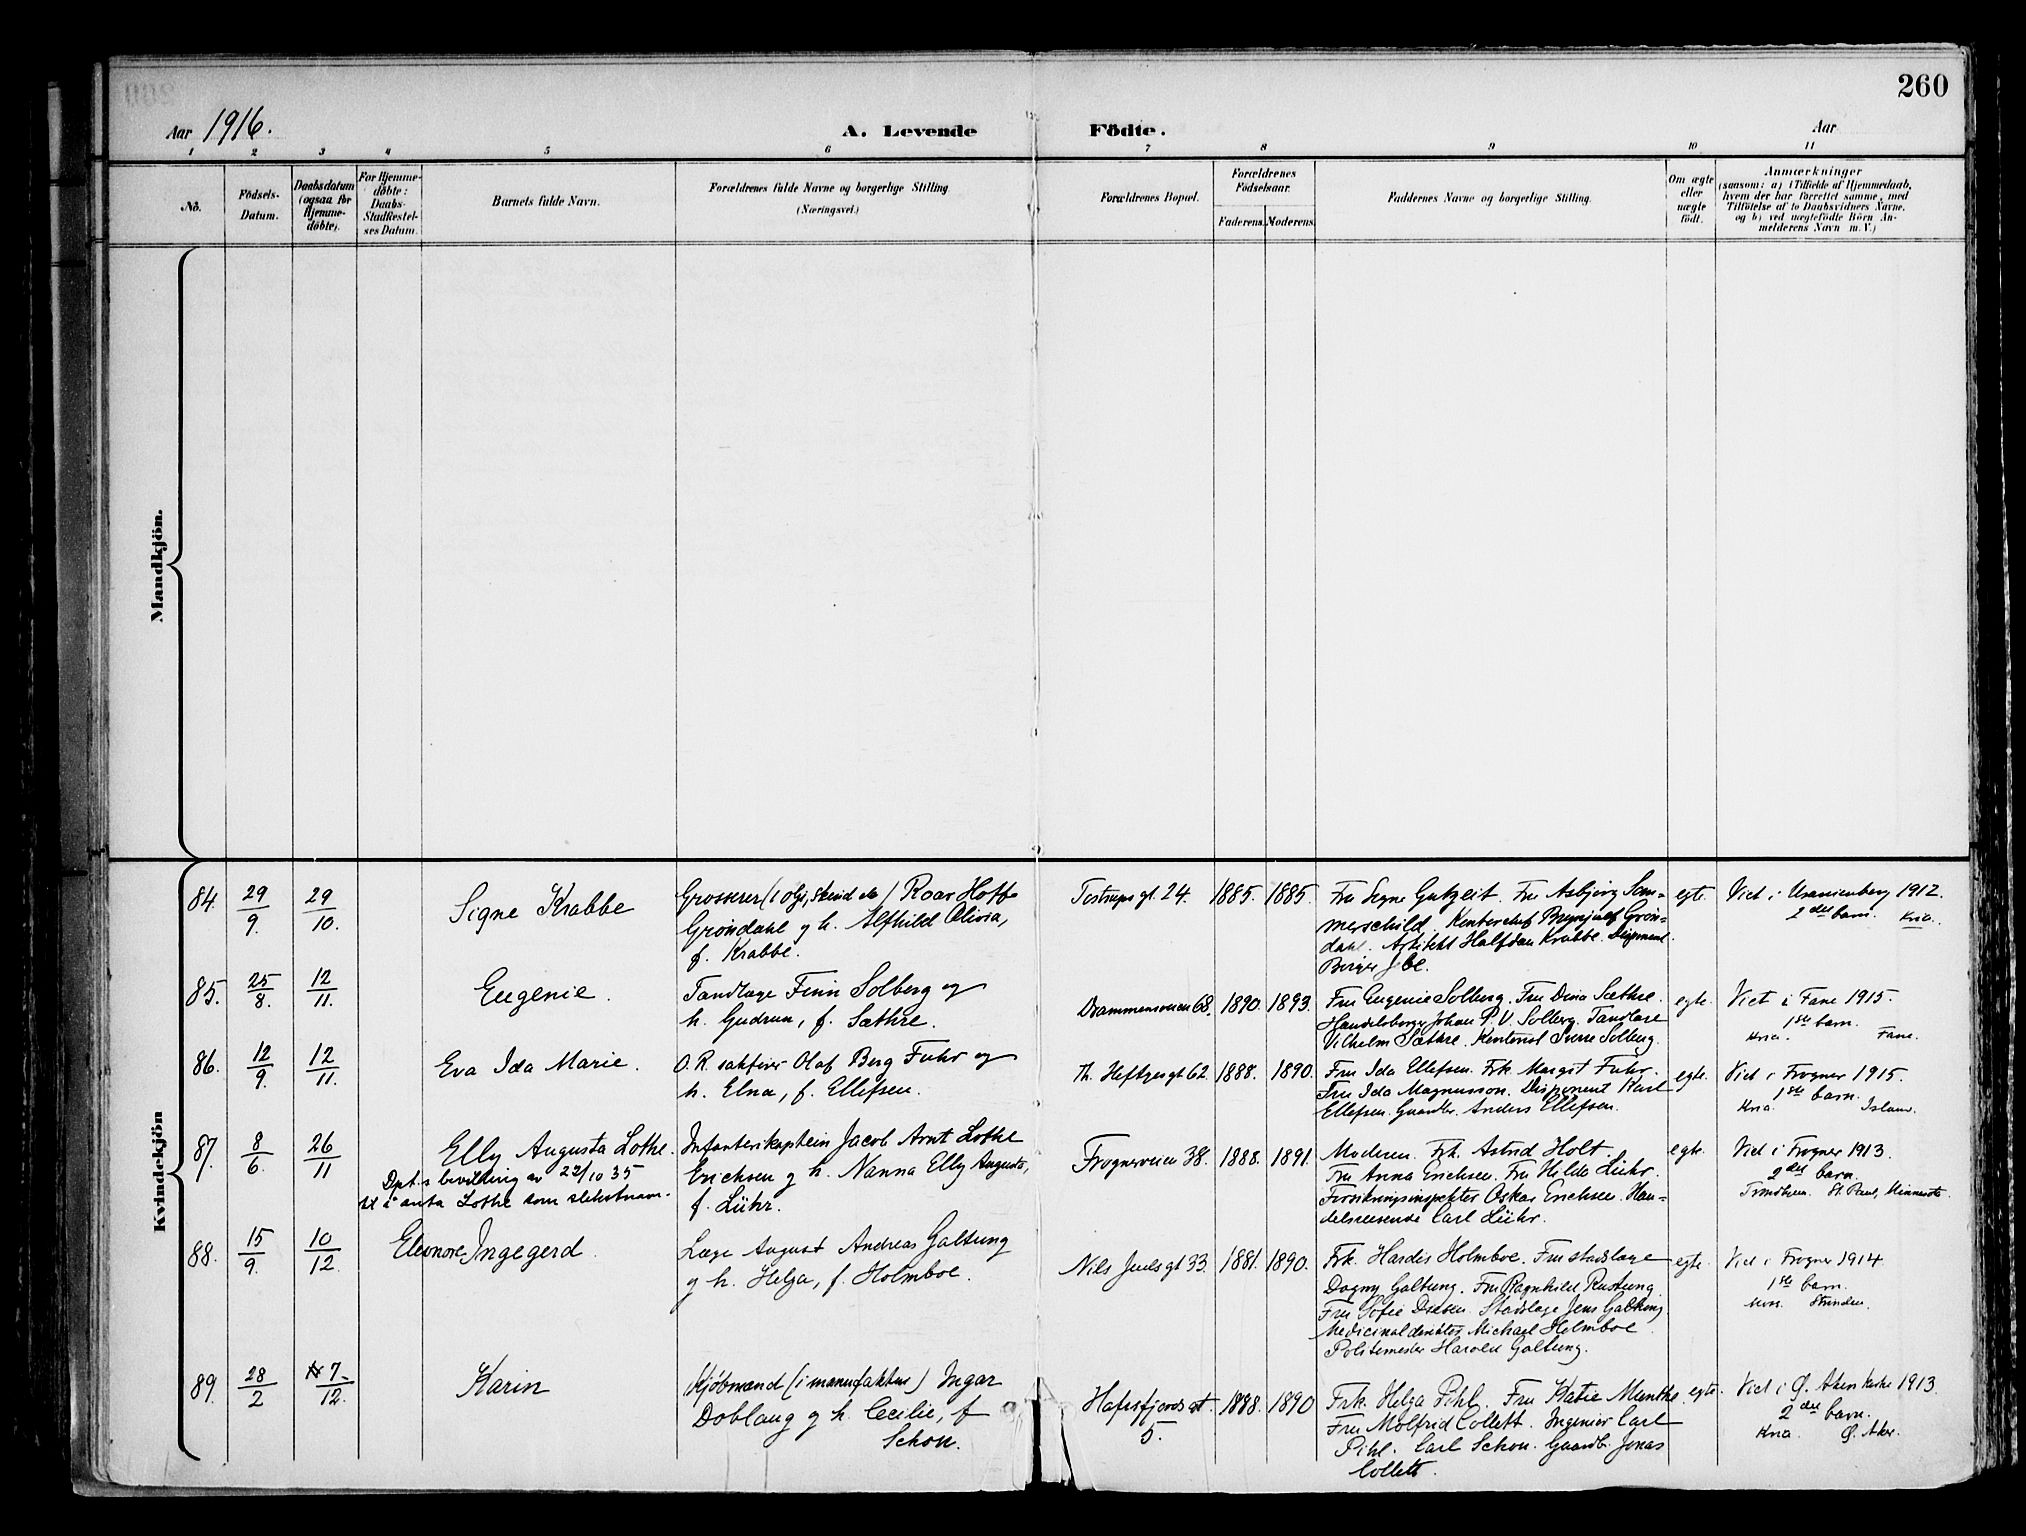 260
Aar 1916.
A. Levende Födte.
Aar
1 2 3 4 5 6 7 8 9 10 11
No.
Födsels-
Datum.
Daabsdatum
(ogsaa for
Hjemme-
döbte).
For Hjemme-
döbte:
Daabs-
Stadfestel-
ses Datum.
Barnets fulde Navn.
Forældrenes fulde Navne og borgerlige Stilling.
(Næringsvei.)
Forældrenes Bopæl.
Forældrenes
Födselsaar.
Faderens. Moderens.
Faddernes Navne og borgerlige Stilling.
Om ægte
eller
uægte
födt.
Anmærkninger
(saasom: a) i Tilfælde af Hjemmedaab,
hvem der har forrettet samme, med
Tilföielse af to Daabsvidners Navne,
og b) ved uægtefödte Börn An-
melderens Navn m.V.)
Mandkjön.
Kvindekjön
84. 29/9. 29/10.
Signe Krabbe
Grosserer (i olje, skind etc) Roar Hoffe
Grøndahl og h. Alfhild Olivia,
f. Krabbe.
Tostrups gt. 24. 1885. 1885.
Fru Signe Gutzeit. Fru Asbjørg Som-
merschild. Kontorchef Brynjulf Grøn-
dahl. Arkitekt Halfdan Krabbe. Disponent
Børge
egte.
Viet i Uranienborg 1912.
2det barn. Kria.
85. 25/8. 12/11.
Eugenie.
Tandlæge Finn Solberg og
h. Gudrun, f. Sæthre.
Drammensveien 68. 1890. 1893.
Fru Eugenie Solberg. Fru Dina Sæthre.
Handelsborger Johan P. V. Solberg. Tandlæge
Vilhelm Sæthre. Kontorist Sverre Solberg.
egte.
Viet i Fane 1915.
1ste barn.
Kria. Fane.
86. 12/9. 12/11.
Eva Ida Marie.
O. R. sakfører Olaf Berg Fuhr og
h. Elna, f. Ellefsen.
Th. Heftyes gt 62. 1888. 1890.
Fru Ida Ellefsen. Frk. Margit Fuhr.
Fru Ida Magnusson. Disponent Karl
Ellefsen. Gaardbr. Anders Ellefsen.
egte.
Viet i Frogner 1915.
1ste barn.
Kria.
87. 8/6. 26/11
Elly Augusta Lothe.
Dpt.s bevilling av 22/10 35
til å anta Lothe som slektsnavn.
Infanterikaptein Jacob Arnt Lothe
Erichsen og h. Nanna Elly Augusta,
f. Lühr.
Frognerveien 38. 1888. 1891.
Moderen. Frk. Astrid Holt.
Fru Anna Erichsen. Fru Hilda Lühr.
Forsikringsinspektør Oskar Erichsen. Han-
delsreisende Carl Lühr.
egte.
Viet i Frogner 1913.
2det barn.
Trondhjem. St. Paul, Minnesota.
88. 15/9. 10/12.
Eleonore Ingegerd.
Læge August Andreas Galtung
og h. Helga, f. Holmboe.
Nils Juels gt 33. 1881. 1890.
Frk. Hardis Holmboe. Fru stadslæge
Dagny Galtung. Fru Ragnhild Rustung.
Fru Sofie . Stadslæge Jens Galtung.
Medicinaldirektør Michael Holmboe.
Politimester Harald Galtung.
egte.
Viet i Frogner 1914
1ste barn.
Moss. Strinden.
89. 28/2 7/12.
Karin
Kjøbmand (i manufaktur) Ingar
Doblaug og h. Cecilie, f.
Schou.
Hafrsfjords gt. 5. 1888. 1890
Frk. Helga Pihl. Fru Katie Munthe.
Fru Molfrid Collett. Ingeniør Carl
Pihl. Carl Schou. Gaardb. Jonas
Collett.
egte.
Viet i Ø. Aker kirke 1913.
2det barn.
Kria. Ø. Aker.